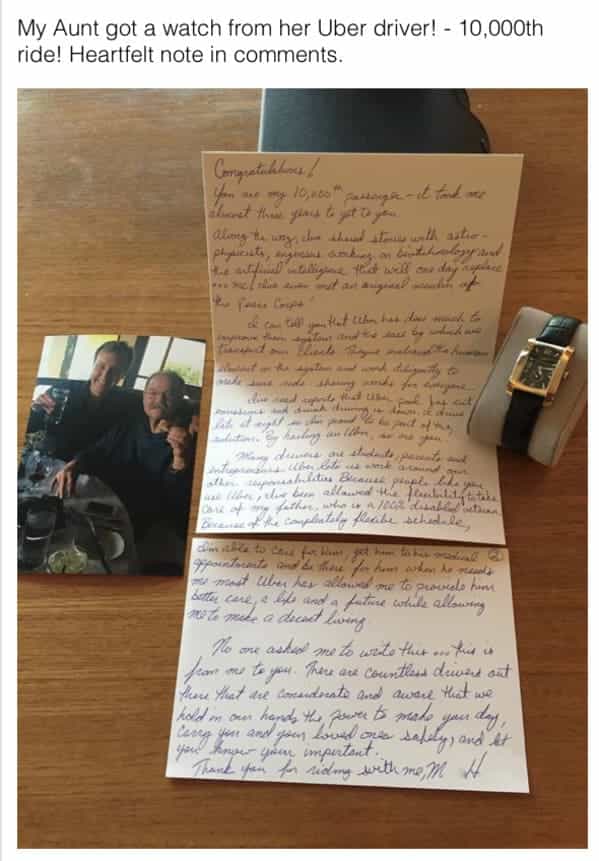 My Aunt got a watch from her Uber driver! - 10,000th
ride! Heartfelt note in comments.
Congratulations!
You are my 10,000th passenger - it took me
almost three years to get to you.
Along the way, I've shared stories with astro-
physicists, engineers working on biotechnology and
the artificial intelligence that will one day replace
... me. I've even met an original member of
the Peace Corps!
I can tell you that Uber has done much to
improve their system and the ease by which we
transport our clients. They've embraced the human
element in the system and work diligently to
make sure ride sharing works for everyone.
I've read reports that Uber pool has cut
emissions and drunk driving is down. I drive
late at night so I'm proud to be part of the
solution. By hailing an Uber, so are you!
Many drivers are students, parents and
entrepreneurs. Uber lets us work around our
other responsibilities. Because people like you
use Uber, I've been allowed the flexibility to take
care of my father, who is a 100% disabled veteran.
Because of the completely flexible schedule,
2
I'm able to care for him, get him to his medical
appointments and be there for him when he needs
me most. Uber has allowed me to provide him
better care, a life and a future while allowing
me to make a decent living.
No one asked me to write this ... this is
from me to you. There are countless drivers out
there that are considerate and aware that we
hold in our hands the power to make your day,
carry you and your loved ones safely, and let
you know your important.
Thank you for riding with me, M H